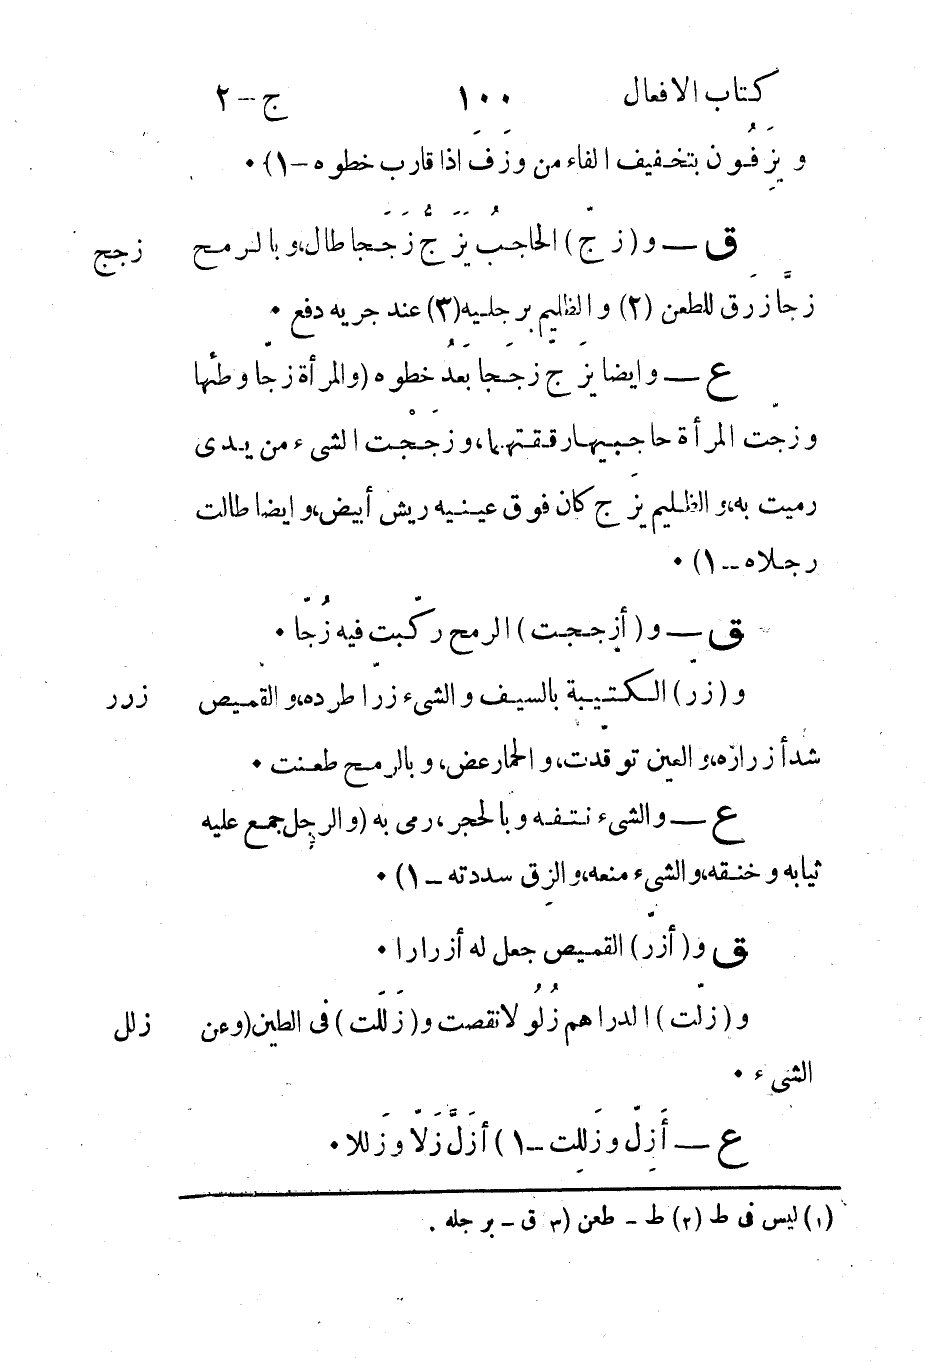 كتاب الافعال ١٠٠ ج-٢
و يَزِفُون بتخفيف الفاء من وَزَفَ اذا قارب خطوه -١) ٠
ق — و (زجّ) الحاجبُ يَزَجُّ زَجَجا طال، و بالرمح زجج
زجًّا زرق للطعن (٢) و الظليم برجليه(٣) عند جريه دفع ٠
ع — و ايضا يزج زججا بعد خطوه (والمرأة زجّا وطئها
و زجّت المرأة حاجبيها رققتهما، و زجَجْت الشىء من يدى
رميت به، و الظليم يزَج كان فوق عينيه ريش أبيض، و ايضا طالت
رجلاه -١) ٠
ق — و (أزججت) الرمح ركّبت فيه زُجّا ٠
و (زرّ) الكتيبة بالسيف و الشىء زرّا طرده، و القميص زرر
شد أزرازه، و العين توقّدت، و الحمار عض، و بالرمح طعنت ٠
ع — و الشىء نتفه و بالحجر، رمى به (و الرجل جمع عليه
ثيابه و خنقه، و الشىء منعه، و الزِق سددته -١) ٠
ق و (أزرّ) القميص جعل له أزرارا ٠
و (زلّت) الدراهم زُلُولا نقصت و (زَلَلت) فى الطين (وعن زلل
الشىء ٠
ع — أَزِلّ و زَلِلت -١) أَزَلُّ زَلّا و زَللا ٠
(١) ليس فى ط (٢) ط - طعن (٣ ق - برجله .